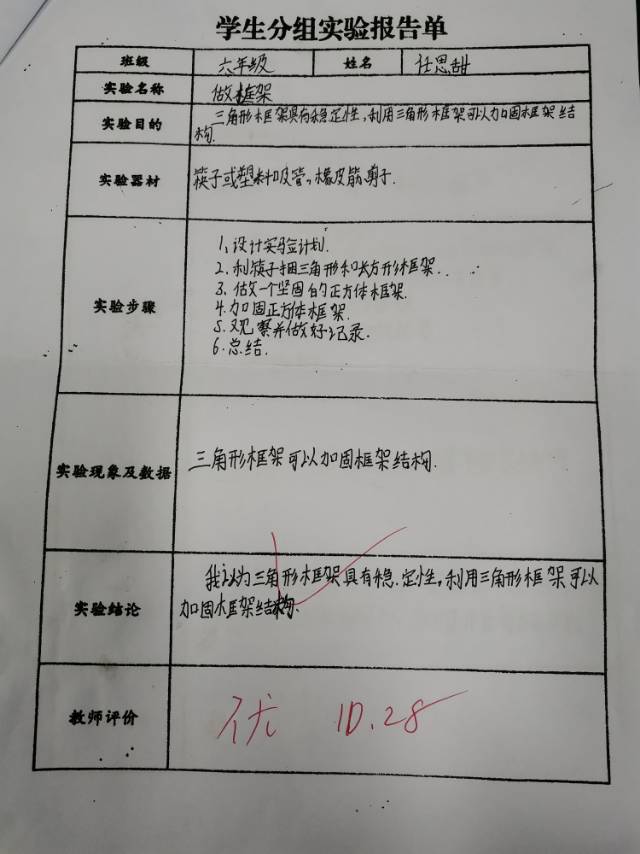 学生分组实验报告单
班级 六年级 姓名 任思甜
实验名称 做框架
实验目的 三角形框架具有稳定性,利用三角形框架可以加固框架结
构.
实验器材 筷子或塑料吸管、橡皮筋、剪子.
实验步骤
1、设计实验计划.
2、利筷子捆三角形和长方形框架.
3、做一个坚固的正方体框架.
4.加固正方体框架.
5.观察并做好记录.
6.总结.
实验现象及数据 三角形框架可以加固框架结构.
实验结论
我认为三角形框架具有稳.定性,利用三角形框架可以
加固框架结构.
教师评价 优 10.28